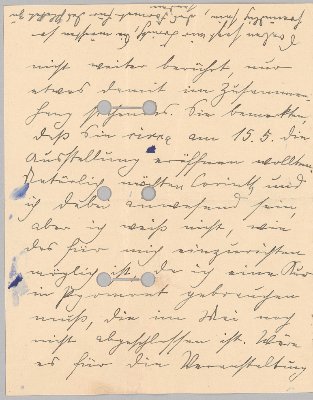 nicht weiter berührt, nur
etwas damit im Zusammen-
hang stehendes. Sie bemerkten,
daß Sie circa am 15.5. die
Ausstellung eröffnen wollten.
Natürlich möchten Corinth und
ich dabei anwesend sein
aber ich weiß nicht, wie
das für mich einzurichten
möglich ist, da ich eine Kur
in Pyrmont gebrauchen
muß, die im Mai noch
nicht abgeschlossen ist. Wäre
es für die Veranstaltung